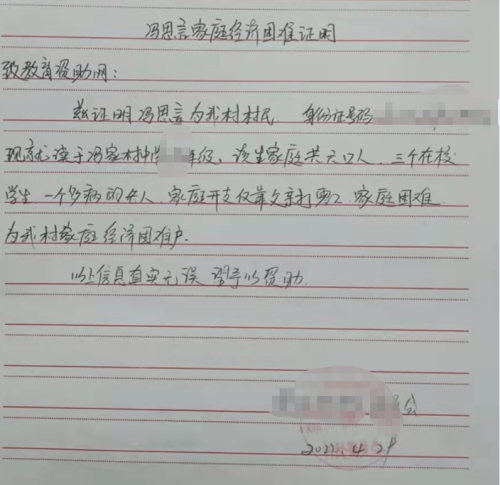 冯思言家庭经济困难证明
致教育资助网：
兹证明冯思言为我村村民 身份证号码
现就读于冯家村中学 年级，该生家庭共 口人，三个在校
学生 一个多病的 人，家庭开支仅靠父亲打零工，家庭困难
为我村家庭经济困难户.
以上信息真实无误 望予以资助
会
4.29